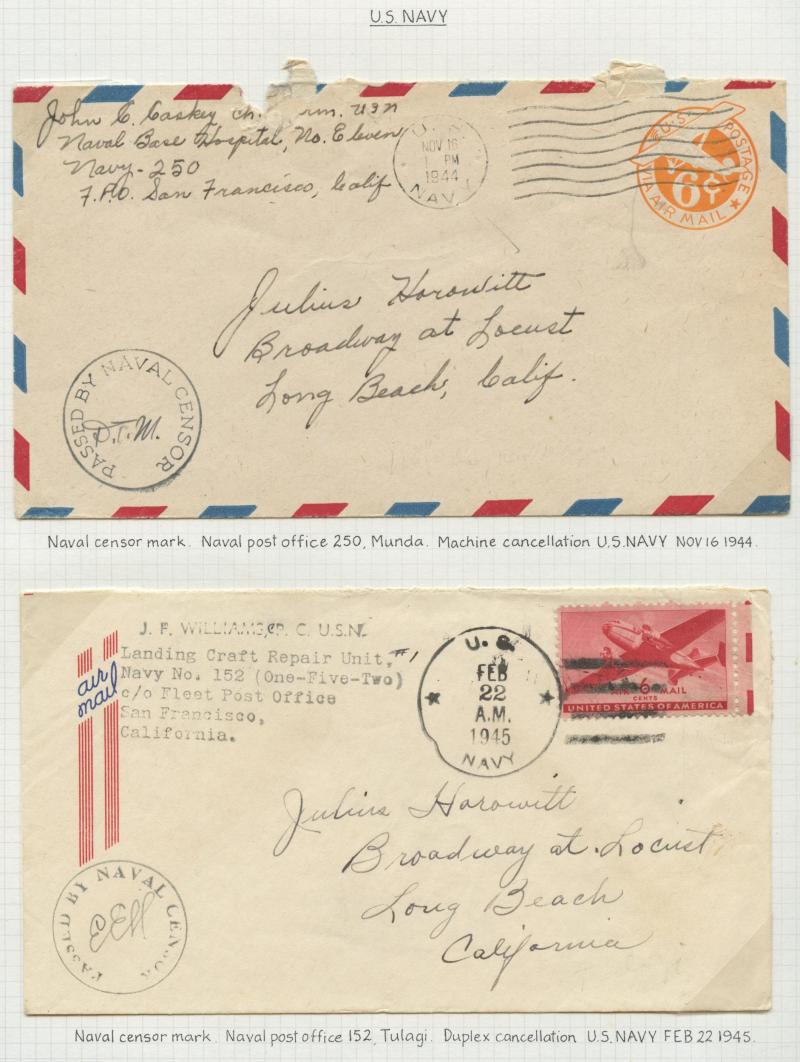 U.S. NAVY
John C. Caskey Ch. rm. USN
Naval Base Hospital, No. Eleven
Navy-250
F.P.O. San Francisco, Calif
U.S.
NOV 16
PM
1944
NAVY
U.S. POSTAGE
6¢
VIA AIR MAIL
Julius Horowitt
Broadway at Locust
Long Beach, Calif.
PASSED BY NAVAL CENSOR
D.T.M.
Naval censor mark. Naval post office 250, Munda. Machine cancellation U.S. NAVY NOV 16 1944.
J. F. WILLIAMS, CP. C. U.S.N.
Landing Craft Repair Unit, #1
Navy No. 152 (One-Five-Two)
c/o Fleet Post Office
San Francisco,
California.
air
mail
U. S.
FEB
22
A.M.
1945
NAVY
AIR 6 MAIL
CENTS
UNITED STATES OF AMERICA
Julius Horowitt
Broadway at Locust
Long Beach
California
PASSED BY NAVAL CENSOR
Naval censor mark. Naval post office 152, Tulagi. Duplex cancellation U.S. NAVY FEB 22 1945.